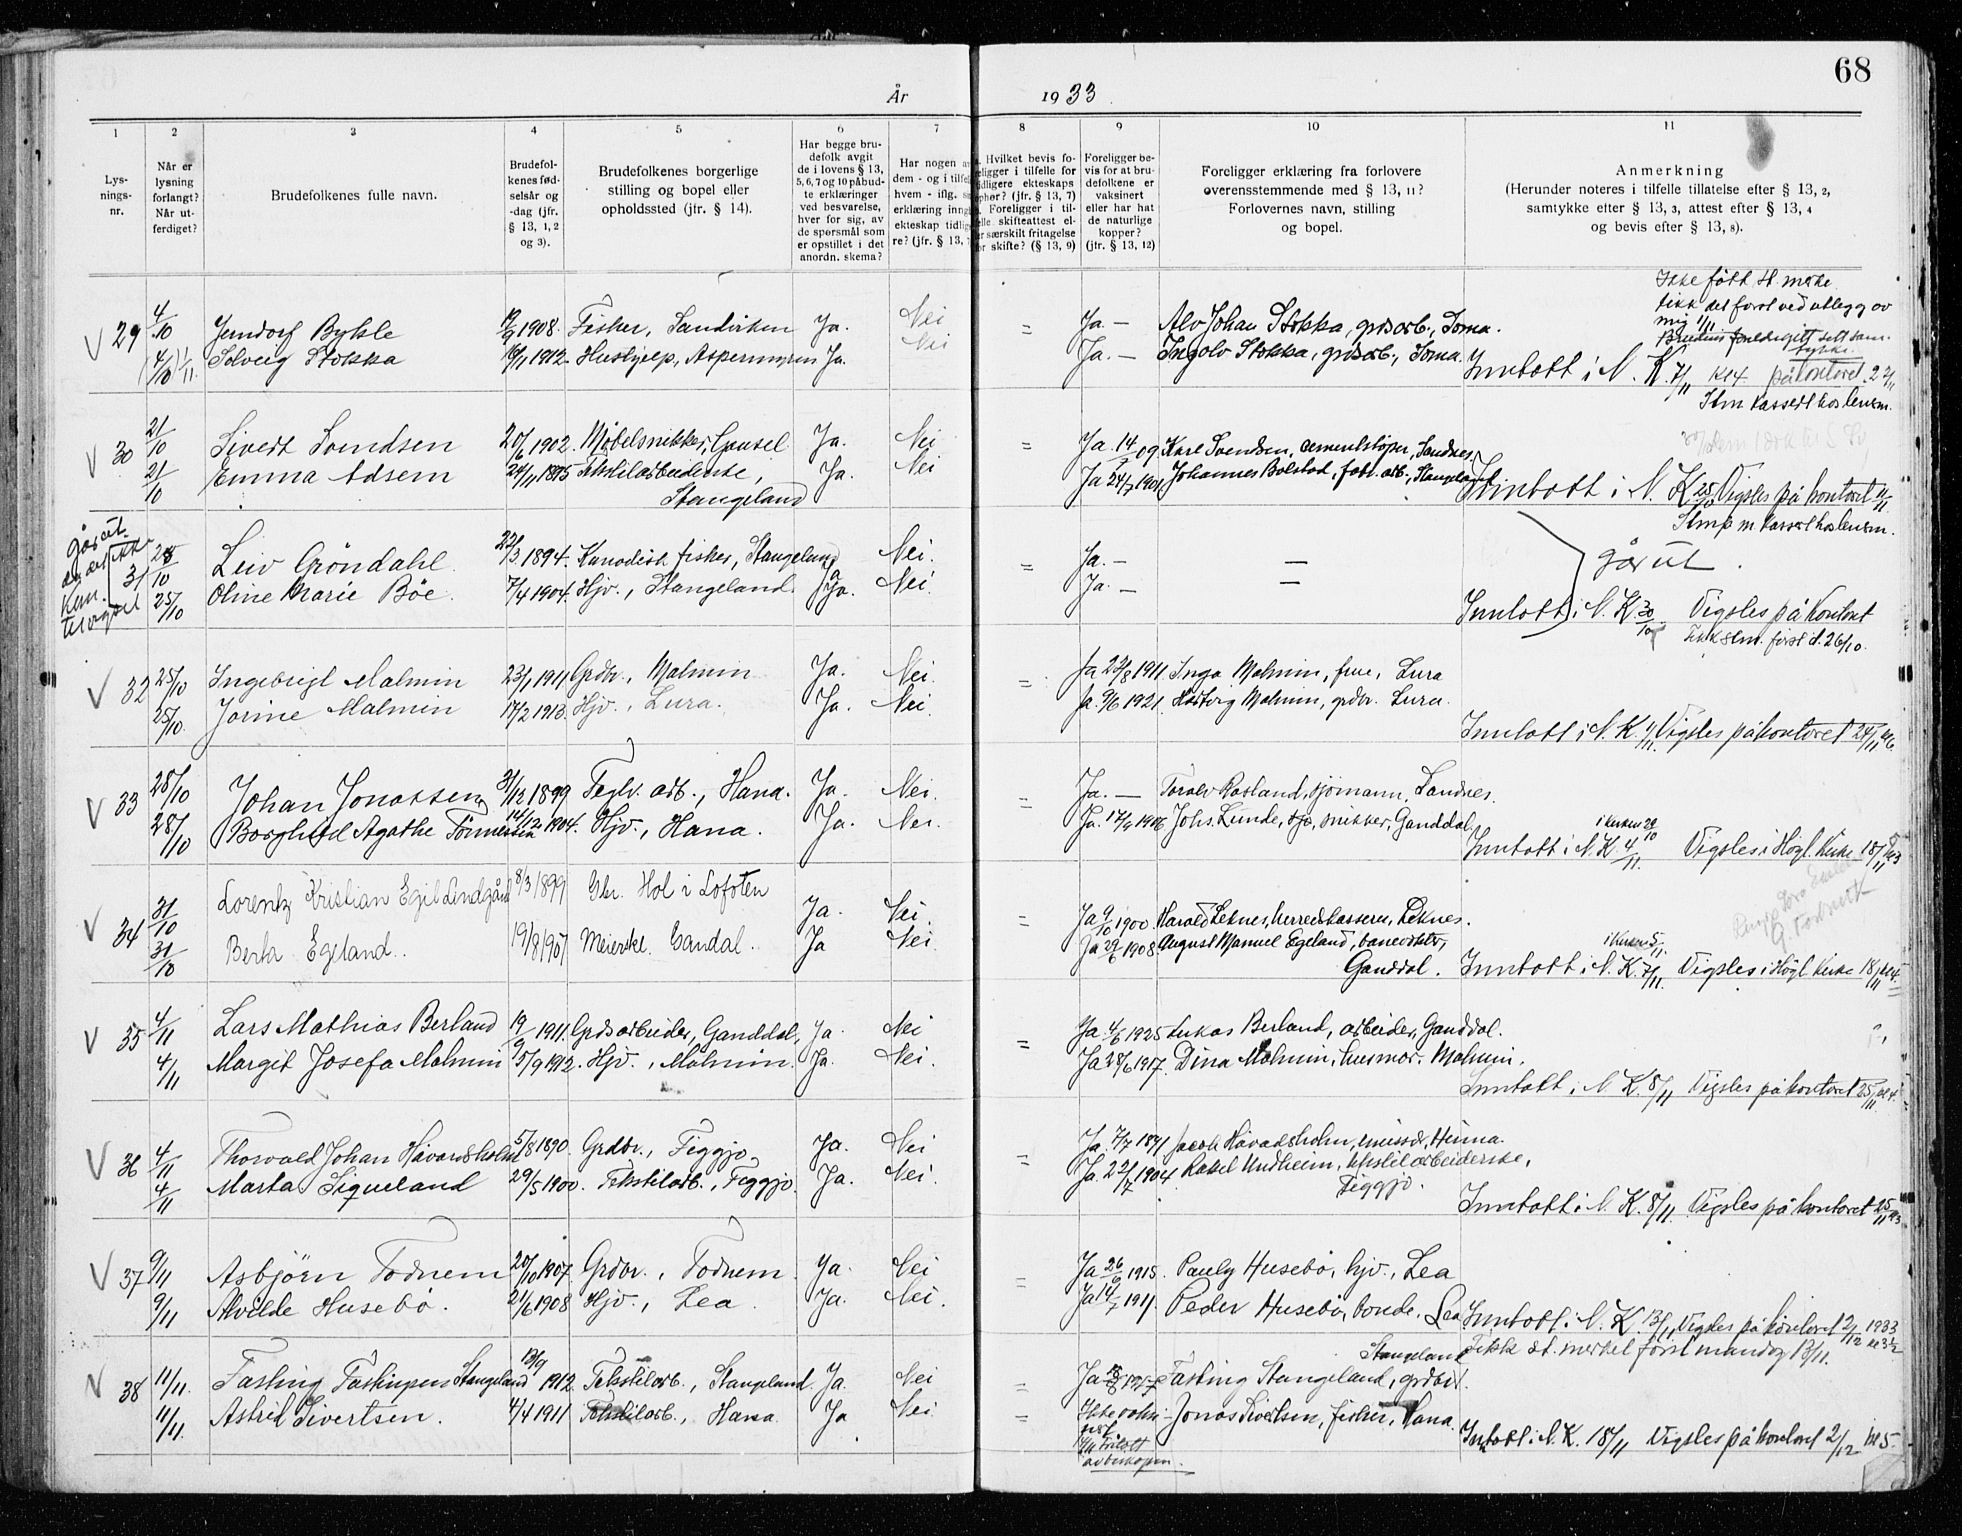 68
År 1933
1 2 3 4 5 6 7 8 9 10 11
Lys-
nings-
nr.
Når er
lysning
forlangt?
Når ut-
ferdiget?
Brudefolkenes fulle navn.
Brudefol-
kenes fød-
selsår og
-dag (jfr.
§ 13, 1, 2
og 3).
Brudefolkenes borgerlige
stilling og bopel eller
opholdssted (jfr. § 14).
Har begge bru-
defolk avgit
de i lovens § 13,
5, 6, 7 og 10 påbud-
te erklæringer
ved besvarelse,
hver for sig, av
de spørsmål som
er opstillet i det
anordn. skema?
Har nogen
dem - og i tilfel
hvem - iflg.
erklæring inng
ekteskap tidlig
re? (jfr. § 13,
Hvilket bevis fo-
religger i tilfelle for
tidligere ekteskaps
ophør? (jfr. § 13, 7)
Foreligger i til-
felle skifteattest el-
er særskilt fritagelse
for skifte? (§ 13, 9)
Foreligger be-
vis for at bru-
defolkene er
vaksinert
eller har hat
de naturlige
kopper?
(jfr. § 13, 12)
Foreligger erklæring fra forlovere
overensstemmende med § 13, 11?
Forlovernes navn, stilling
og bopel.
Anmerkning
(Herunder noteres i tilfelle tillatelse efter § 13, 2,
samtykke efter § 13, 3, attest efter § 13, 4
og bevis efter § 13, 8).
Ikke fått st. merke
fikk det først ved utlegg av
mig 1/11
29 4/10 Bykle 1908. Fisher, Sandviken Ja. Nei = Ja. — Alv Johan Stokka, grdsarb., Soma.
(4/10) 1/11. Solveig Stokka 1912. Hushjelp, Ja. Nei Ja. — Ingolv Stokka, grdsarb., Soma.
Inntatt i N. K. 7/11 kl 4 på kontoret
30 21/10 Sivert Svendsen 20/6 1902. Møbelsnikker, Gausel Ja. Nei = Ja 14/ 09 Karl Svendsen, cementstøper, Sandnes.
21/10 Emma Adsem 24/11 Tekstilarbeiderske, Ja. Nei Ja 24/7 1901. Johannes Bolstad, fabr. arb., Stangeland
Stangeland
Inntatt i N. K. 25/10 Vigsles på kontoret 11/11
går ut
31 10 Leiv Gröndahl 22/3 1894. fisker, Stangeland Ja Nei. = Ja. — —
25/10 Oline Marie Böe. 7/4 1904. Hjv., Stangeland. Ja. Nei. Ja. — —
går ut.
Inntatt i N. K. 30/10 Vigsles på kontoret
Fikk stm. først d. 26/10.
32 25/10 Ingebrigt Malmin 23/1 1911 Grdbr., Malmin Ja. Nei. = Ja 1911. Inga Malmin, frue, Lura
25/10. Jorine Malmin 17/2 1913. Hjv., Lura. Ja. Nei. Ja. 9/6 1921. Hartvig Malmin, grdbr. Lura.
Inntatt i N. K. Vigsles på kontoret 24/11
33 28/10 Johan Jonassen 31/12 1899 Teglv. arb., Hana. Ja. Nei. = Ja. — Toralv Rosland, sjömann, Sandnes.
28/10 Borghild Agathe Tönnessen 14/12 1904. Hjv., Hana. Ja. Nei. Ja. 17/9 1906 Johs. Lunde, snikker, Ganddal,
i kirken 29/10
Inntatt i N. K. 4/11. Vigsles i Högl. Kirke 18/11
34 31/10 Lorentz Kristian Egil Lindgård 8/3 1899 Gbr. Hol i Lofoten Ja. Nei. = Ja 9/10 1900 Harald Leknes, herredskasserer, Leknes.
31/10 Berta Egeland.. 19/8 1907 Meierske. Gandal. Ja Nei. Ja 1908. August Manuel Egeland, banevokter,
Ganddal.
i kirken 5/11.
Inntatt i N. K. 7/11. Vigsles i Högl Kirke 18/11
35 4/11 Lars Mathias Berland 19/9 1911. Grdsarbeider, Ganddal, Ja. Nei = Ja 4/6 1925 Lukas Berland, arbeider, Ganddal.
4/11 Margit Josefa Malmin 5/9 1912. Hjv., Malmin. Ja. Nei. Ja 1917. Dina Malmin, husmor. Malmin.
Inntatt i N. K. 8/11 Vigsles på kontoret 25/11
36 4/11 Thorvald Johan Håvardsholm 5/8 1890. Grdbr., Figgjo, Ja. Nei = Ja. 7/7 1891 Jacob Håvardsholm, emissær, Heima.
4/11 Marta Sigueland 29/5 1900. Tekstilarb., Figgjo. Ja. Nei. Ja. 22/7 1904 Rakel Undheim, tekstilarbeiderske,
Figgjo.
Inntatt i N. K. 8/11. Vigsles på kontoret 25/11
37 9/11 Asbjörn Todnem 20/10 1907. Grdbr., Todnem Ja. Nei = Ja 26/6 1915. Pauly Husebö, hjv., Lea
9/11 Alvilde Husebö. 21/6 1908 Hjv., Lea. Ja. Nei. Ja 14/7 1911. Peder Husebö, bonde, Lea
Inntatt i N. K. 13/11. Vigsles på kontoret 2/12 1933
Fikk st. merket først mandag 13/11.
Stangeland
38 11/11. Fasting Stangeland 13/9 1912. Tekstilarb., Stangeland. Ja Nei = Ja Fasting Stangeland, grdbr.
11/11. Astrid Sivertsen. 4/4 1911 Tekstilarb., Hana. Ja Nei = Ikke Jonas Sivertsen, fisher, Hana
Inntatt i N. K. 18/11 Vigsles på kontoret 2/12 kl 5.